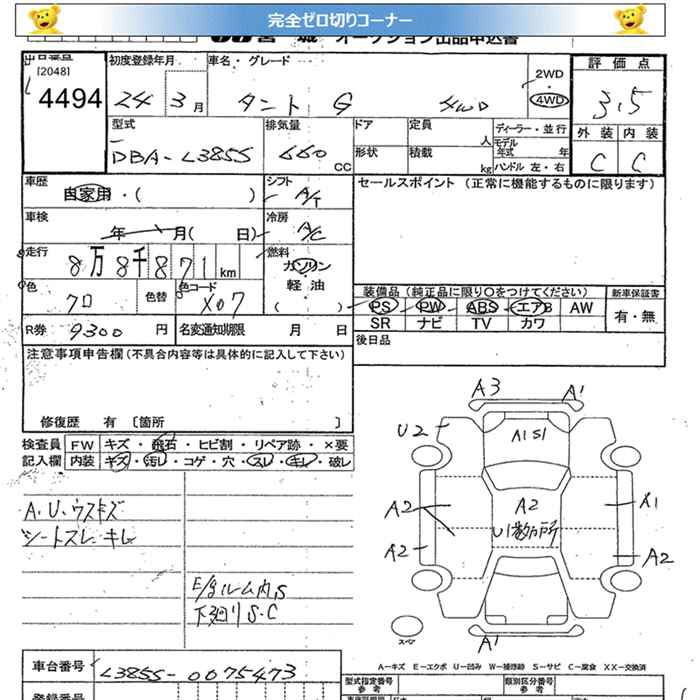 完全ゼロ切りコーナー
宮城 オークション出品申込書
出品番号
[2048]
4494
初度登録年月
24 3月
車名・グレード
タント G 4WD
2WD
4WD
評価点
3.5
外装 内装
C C
型式
DBA-L385S
排気量
660 CC
ドア
形状
定員 人
積載 kg
ディーラー・並行
モデル年式 年
ハンドル 左・右
車歴
自家用・( )
シフト
A/T
セールスポイント (正常に機能するものに限ります)
車検
年 月( 日)
冷房
A/C
走行
8万8千871km
燃料
ガソリン
軽油
( )
色
クロ
色替
色コード
X07
装備品 (純正品に限り○をつけてください) 新車保証書
PS PW ABS エアB AW 有・無
SR ナビ TV カワ
R券 9300円
名変通知期限 月 日
後日品
注意事項申告欄(不具合内容等は具体的に記入して下さい)
修復歴 有 〔箇所 〕
検査員
記入欄
FW キズ・飛石・ヒビ割・リペア跡・×要
内装 キズ・汚レ・コゲ・穴・スレ・キレ・破レ
A3 A1
U2 A1S1
A2 A2 A1
U1数カ所
A2 A2
A1
スペア
A.U.ウスキズ
シートスレ キレ
E/gルーム内S
下廻りS.C
A-キズ E-エクボ U-凹み W-補修跡 S-サビ C-腐食 XX-交換済
車台番号
L385S-0075473
型式指定番号
参考
類別区分番号
参考
登録番号